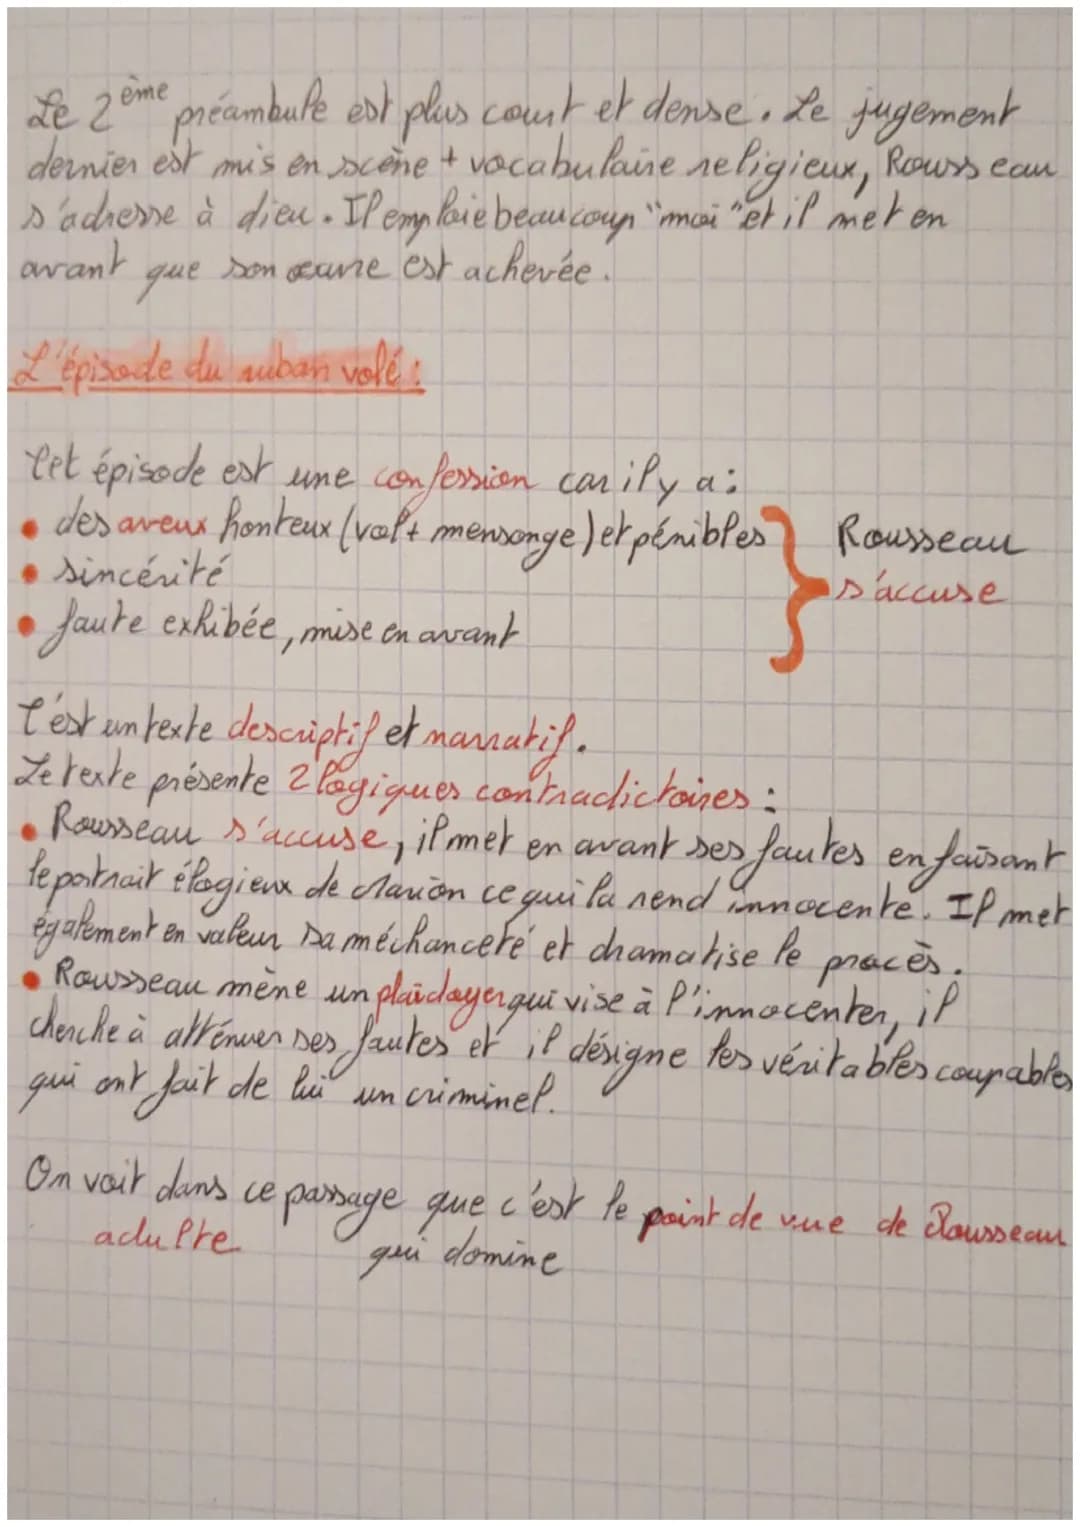 Le 2ème préambule est plus court et dense. Le jugement
dernier est mis en scène + vocabulaire religieux, Rousseau
s'adresse à dieu. Il emploie beaucoup "moi" et il met en
avant que son œuvre est achevée.
L'épisode du ruban volé :
Cet épisode est une confession car il y a :
• des aveux honteux (vol + mensonge) et pénibles
• sincérité
• faute exhibée, mise en avant
Rousseau
s'accuse
C'est un texte descriptif et narratif.
Le texte présente 2 logiques contradictoires :
• Rousseau s'accuse, il met en avant ses fautes en faisant
le portrait élogieux de Marion ce qui la rend innocente. Il met
également en valeur sa méchanceté et dramatise le procès.
• Rousseau mène un plaidoyer qui vise à l'innocenter, il
cherche à atténuer ses fautes et il désigne les véritables coupables
qui ont fait de lui un criminel.
On voit dans ce passage que c'est le point de vue de Rousseau
adulte qui domine